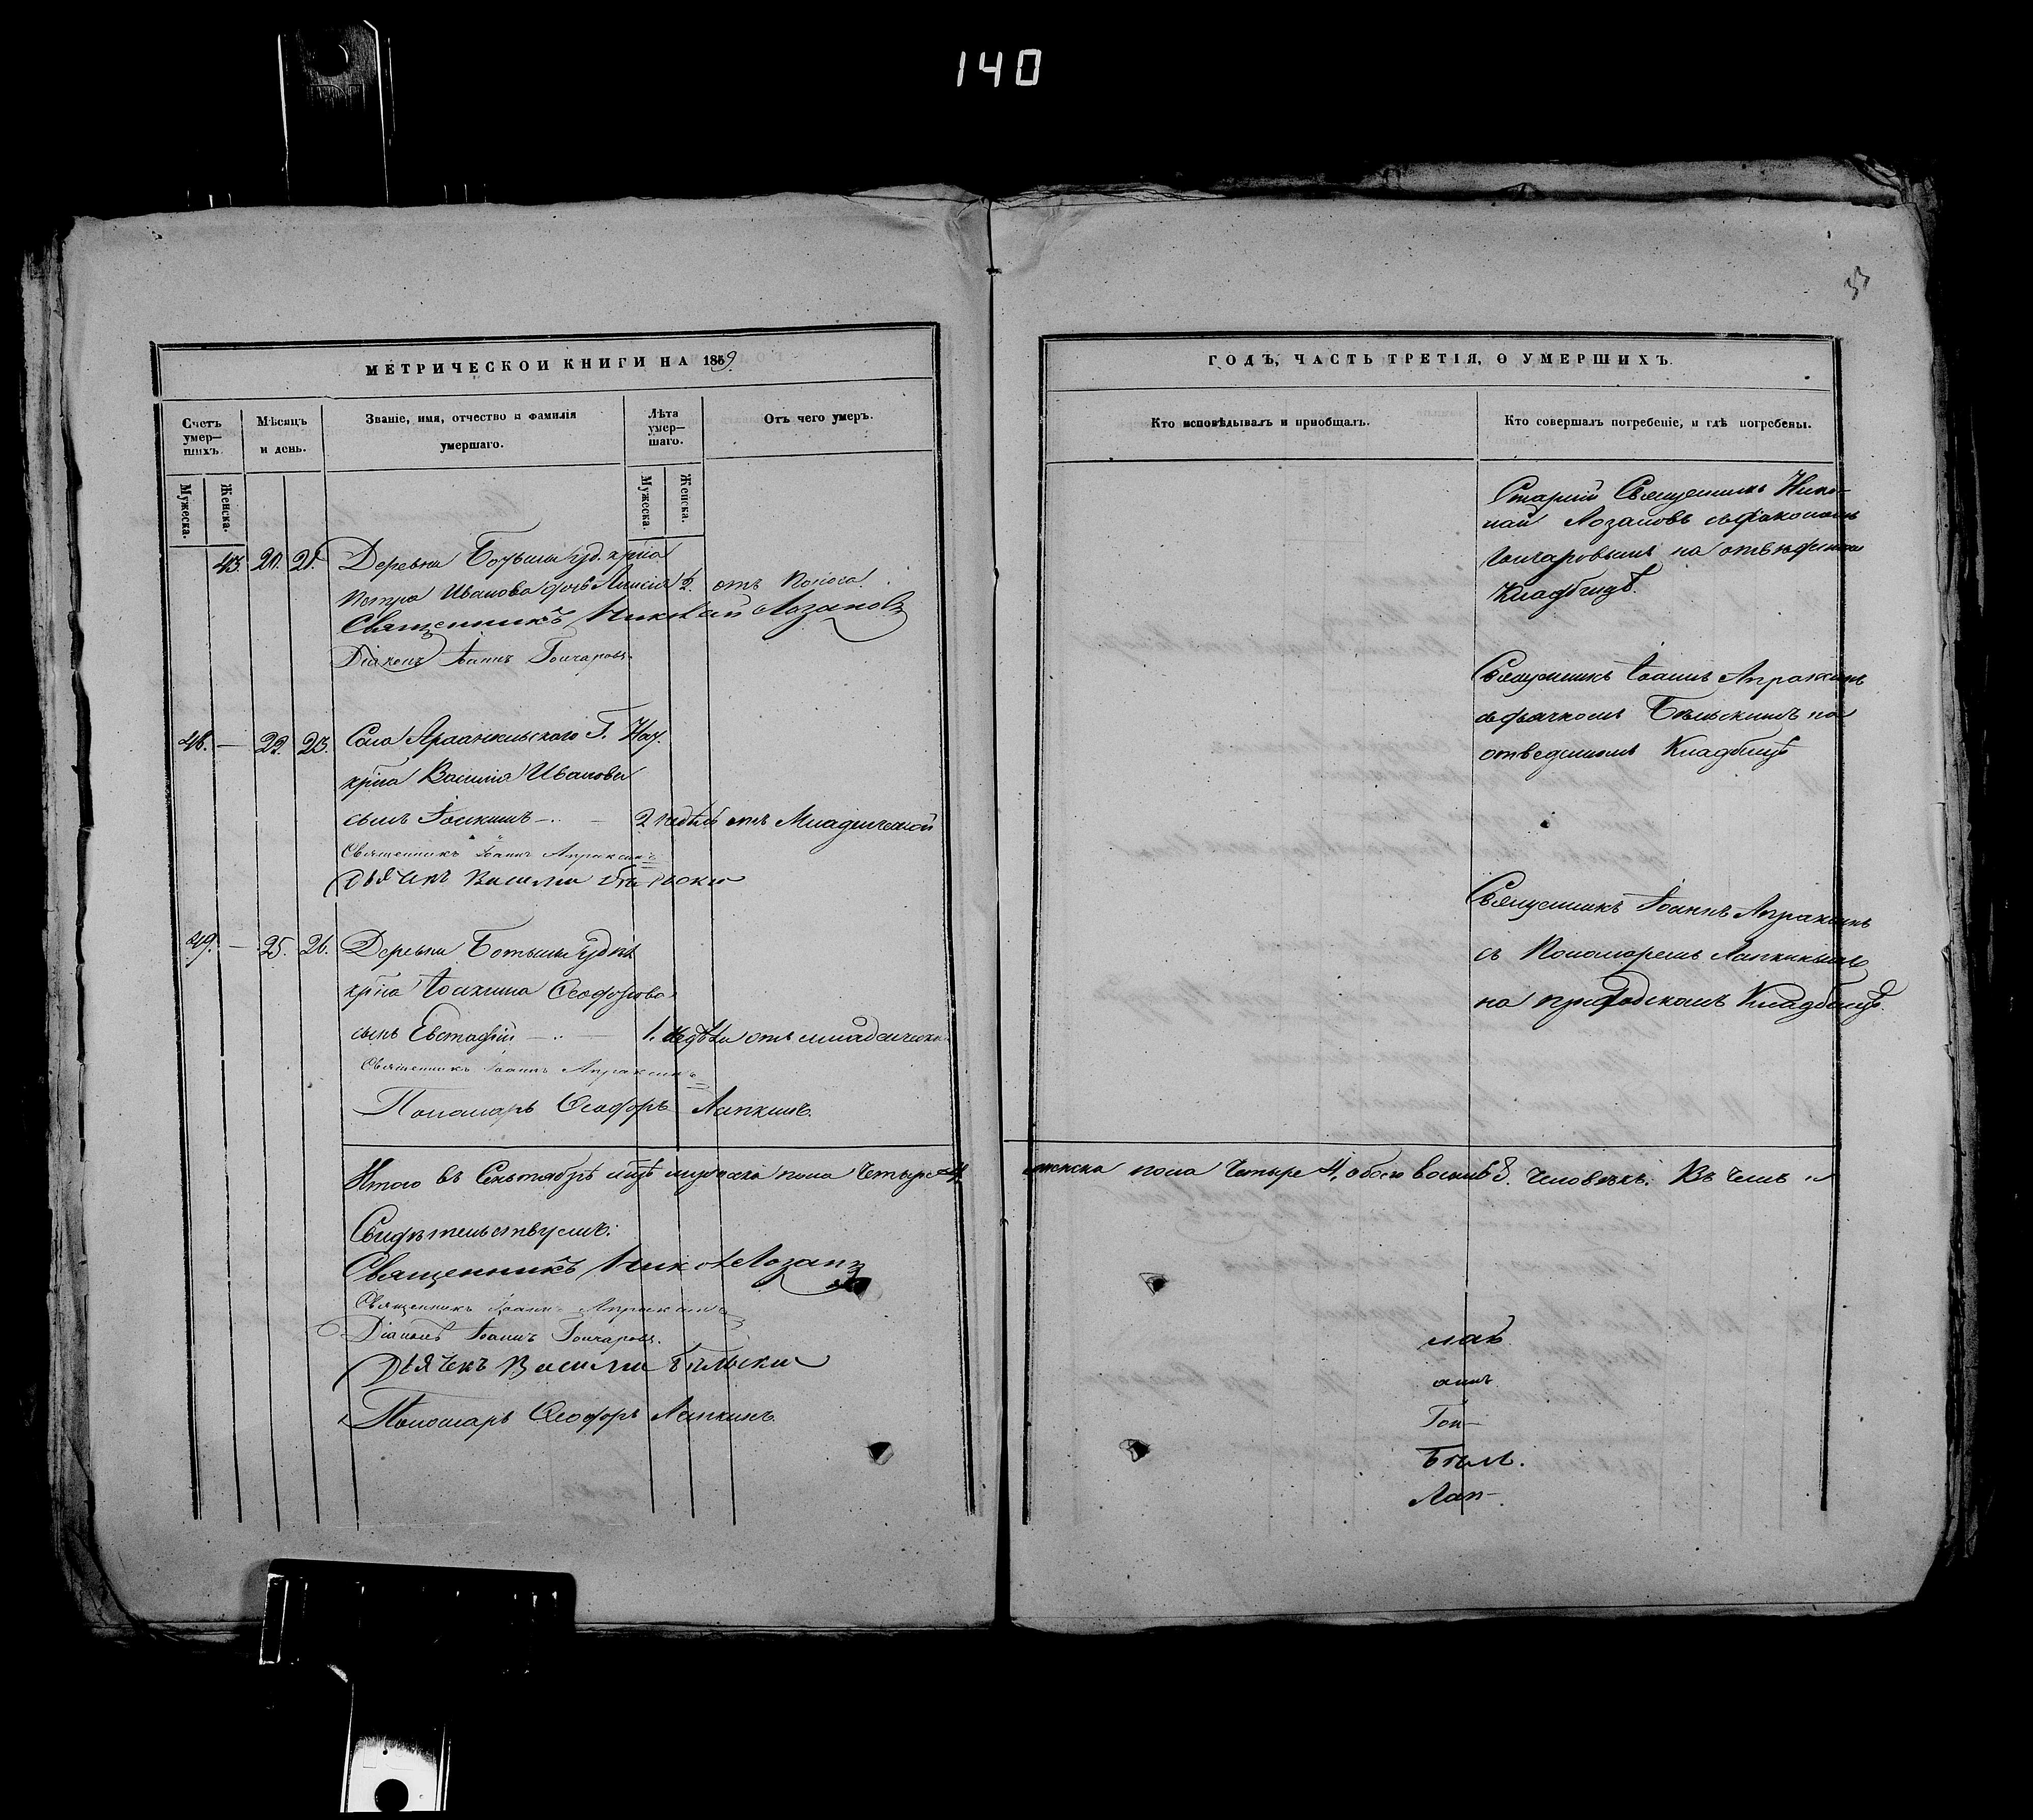 140
МЕТРИЧЕСКОЙ КНИГИ НА 1859
Счетъ умер—шихъ.
Мѣсяцъ и день.
Званіе, имя, отчество и фамилія умершаго.
Лѣта умер—шаго.
Отъ чего умеръ.
Мужеска.
Женска.
Мужеска.
Женска.
43. 20. 21. Деревни
Петра Иванова дочь 2. отъ поноса
Священникъ Николай Лозановъ
Діаконъ Іоаннъ Гончаровъ
48. — 22. 23. Села Архангельскаго Г.
крна Василія Иванова
сынъ Іоакимъ — 2 недѣль отъ Младенческой
Священникъ Іоаннъ Апраксинъ
Дьячекъ Василий Бѣльский
49. — 25. 26. Деревни
крна Іоакима Ѳеодорова
сынъ Евстафій — 1. недѣли отъ младенческой
Священникъ Іоаннъ Апраксинъ
Пономарь Ѳеодоръ Лапкинъ.
Итого въ Сентябрѣ мцѣ мужеска пола Четыре 4.
Свидѣтельствуемъ:
Священникъ Никол Лозан
Священникъ Іоаннъ Апраксинъ
Діаконъ Іоаннъ Гончаровъ.
Дьячекъ Василий Бѣльский
Пономарь Ѳеодоръ Лапкинъ.
33
ГОДЪ, ЧАСТЬ ТРЕТІЯ, О УМЕРШИХЪ.
Кто исповѣдывалъ и приобщалъ.
Кто совершалъ погребеніе, и гдѣ погребены.
Старій Священникъ Нико-
лай Лозановъ съ Діакономъ
Гончаровымъ на отведенномъ
Кладбищѣ.
Священникъ Іоаннъ Апраксинъ
съ дьячкомъ Бѣльскимъ на
отведенномъ Кладбищѣ
Священникъ Іоаннъ Апраксинъ
съ Пономаремъ Лапкинымъ
на приходскомъ Кладбищѣ.
женска пола Четыре 4, обоего восемь 8. Человѣкъ. Въ чемъ и
лай
аннъ
Гон-
Бѣль.
Лап-